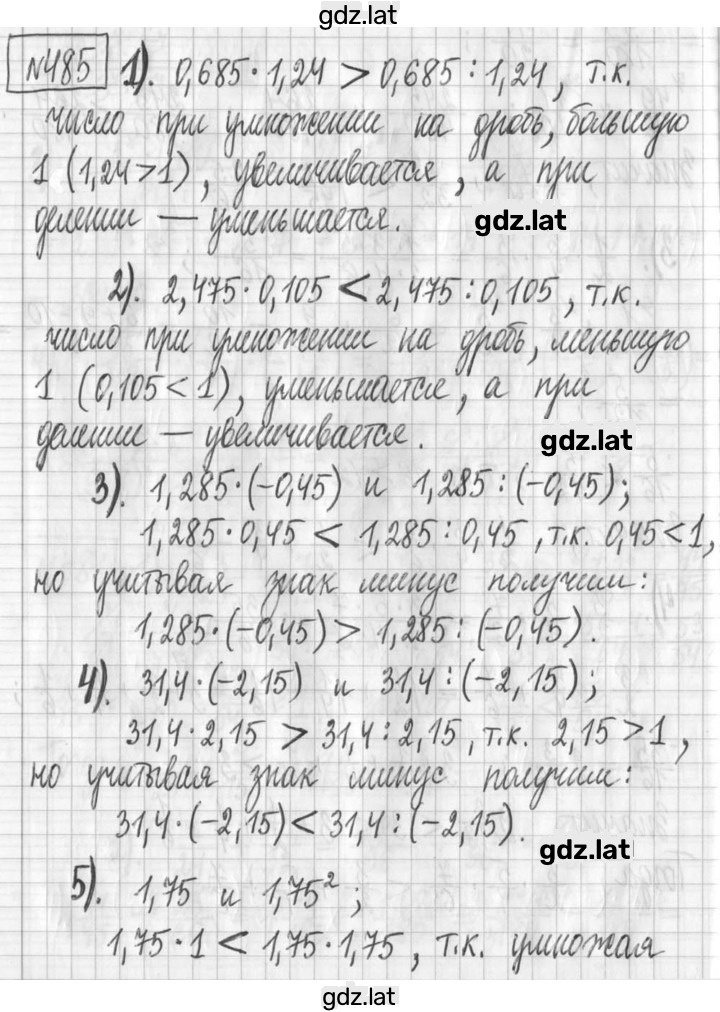 gdz.lat
№485 1). 0,685·1,24 > 0,685:1,24, т.к.
число при умножении на дробь, большую
1 (1,24>1), увеличивается, а при
делении — уменьшается.
gdz.lat
2). 2,475·0,105 < 2,475:0,105, т.к.
число при умножении на дробь, меньшую
1 (0,105<1), уменьшается, а при
делении — увеличивается.
gdz.lat
3). 1,285·(-0,45) и 1,285:(-0,45);
1,285·0,45 < 1,285:0,45, т.к. 0,45<1,
но учитывая знак минус получим:
1,285·(-0,45) > 1,285:(-0,45).
4). 31,4·(-2,15) и 31,4:(-2,15);
31,4·2,15 > 31,4:2,15, т.к. 2,15>1,
но учитывая знак минус получим:
31,4·(-2,15) < 31,4:(-2,15).
gdz.lat
5). 1,75 и 1,75²;
1,75·1 < 1,75·1,75, т.к. умножая
gdz.lat